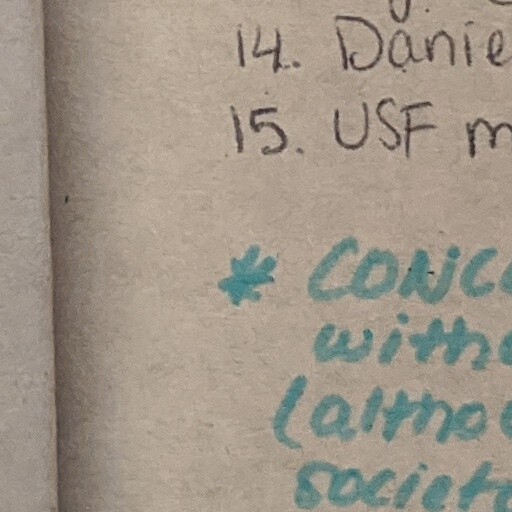 14. Danie
15. USF m
* CONCE
witho
(althou
societ